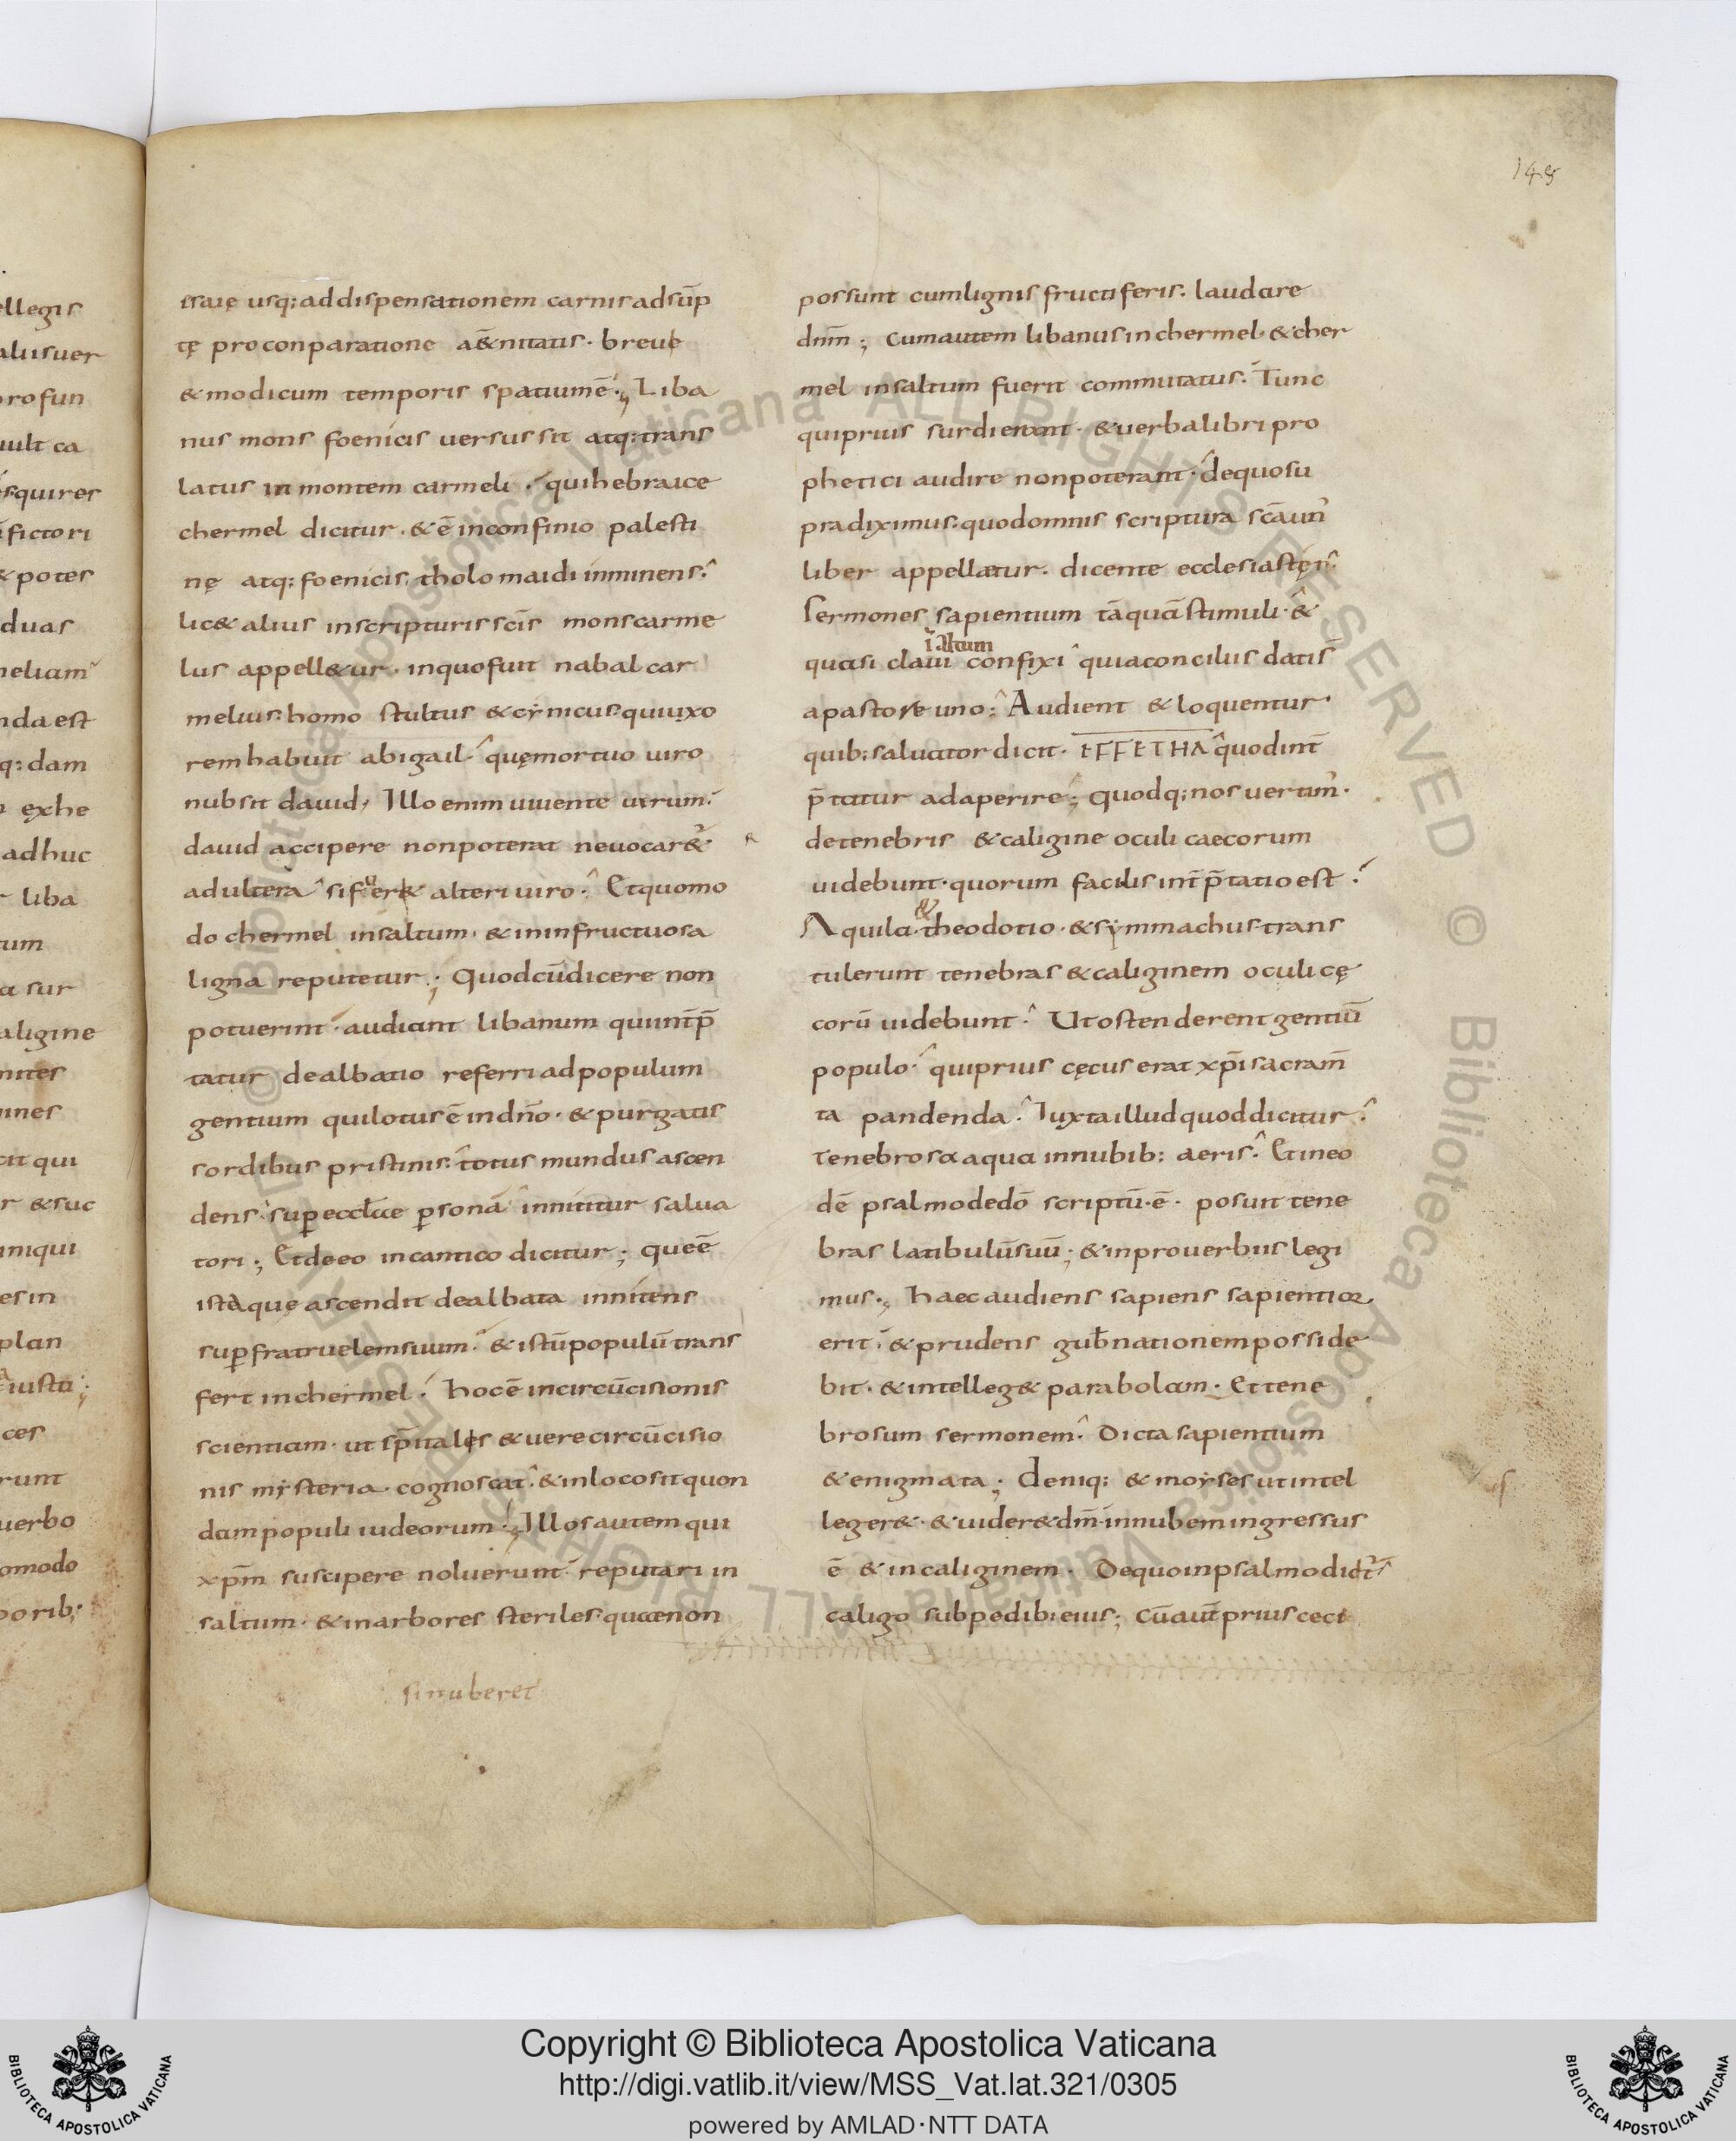 148
ellegis
aliisuer
profun
uult ca
squires
fictori
& potes
duas
meliam
nda est
q: dam
exhe
adhuc
liba
tum
a sur
aligine
nites
mnes
cit qui
r & suc
iniqui
es in
plan
iusta;
ces
runt
uerbo
omodo
porib;
esaię usq: ad dispensationem carnis adsūp
tę pro conparatione a&̄nitatis · breue
& modicum temporis spatium ē ·; Liba
nus mons foenicis uersus sit atq: trans
latus in montem carmeli · qui hebraice
chermel dicitur · & ē in confinio palesti
nę atq: foenicis · tholomaidi inminens ·
lic& alius in scripturis sc̄is mons carme
lus appell&ur · in quo fuit nabal car
melius · homo stultus & cynicus · qui uxo
rem habuit abigail · quę mortuo uiro
nubsit dauid · Illo enim uiuente uirum ·
dauid accipere non poterat ne uocar& ·
adultera si fuer& alteri uiro · Et quomo
do chermel in saltum · & in infructuosa
ligna reputetur ; Quod cū dicere non
potuerint · audiant libanum qui int̄p̄
tatur dealbatio referri ad populum
gentium qui lotus ē in dn̄o · & purgatis
sordibus pristinis · totus mundus ascen
dens · sup eccl̄ae p̱sonā innititur salua
tori ·; Et deo in cantico dicitur ; que ē
ista quę ascendit dealbata innitens
sup fratruelem suum · & istū populū trans
fert in chermel · hoc ē in circūcisionis
scientiam · ut sp̄itales & uere circūcisio
nis mysteria cognoscat · & in loco sit quon
dam populi iudeorum ·; Illos autem qui
xp̄m suscipere noluerunt · reputari in
saltum · & in arbores steriles · quae non
si nuberet
possunt cum lignis fructiferis · laudare
dnm̄ ; cum autem libanus in chermel · & cher
mel in saltum fuerit commutatus · Tunc
qui prius surdi erant · & uerba libri pro
phetici audire non poterant · de quo su
pra diximus · quod omnis scriptura sc̄a un
liber appellatur · dicente ecclesiastę ·
Sermones sapientium tāquā stimuli · &
in altum
quasi claui confixi quia conciliis datis
a pastore uno · Audient & loquentur ·
quib: saluator dicit · EFFETHA quod int̄
p̄tatur adaperire ; quodq; nos uertim ·
de tenebris & caligine oculi caecorum
uidebunt · quorum facilis int̄p̄tatio est ·
&
Aquila · theodotio · & symmachus · trans
tulerunt tenebras & caliginem oculi cę
corū uidebunt · Ut ostenderent gentiū
populo · qui prius cęcus erat xp̄i sacram̄
ta pandenda · Iuxta illud quod dicitur ·
Tenebrosa aqua in nubib: aeris · Et in eo
dē psalmo de dō scriptū · ē · posuit tene
bras latibulū suū ; & in prouerbiis legi
mus ·; haec audiens sapiens sapientior
erit · & prudens gub̄nationem posside
bit · & intelleg& parabolam · Et tene
brosum sermonem · Dicta sapientium
& enigmata ; deniq: & moyses ut intel
leger& · & uider& dm̄ · in nubem ingressus
ē & in caliginem · De quo in psalmo dicit̄
caligo sub pedib: eius ; cū aut̄ prius ceci
Copyright © Biblioteca Apostolica Vaticana
http://digi.vatlib.it/view/MSS_Vat.lat.321/0305
powered by AMLAD·NTT DATA